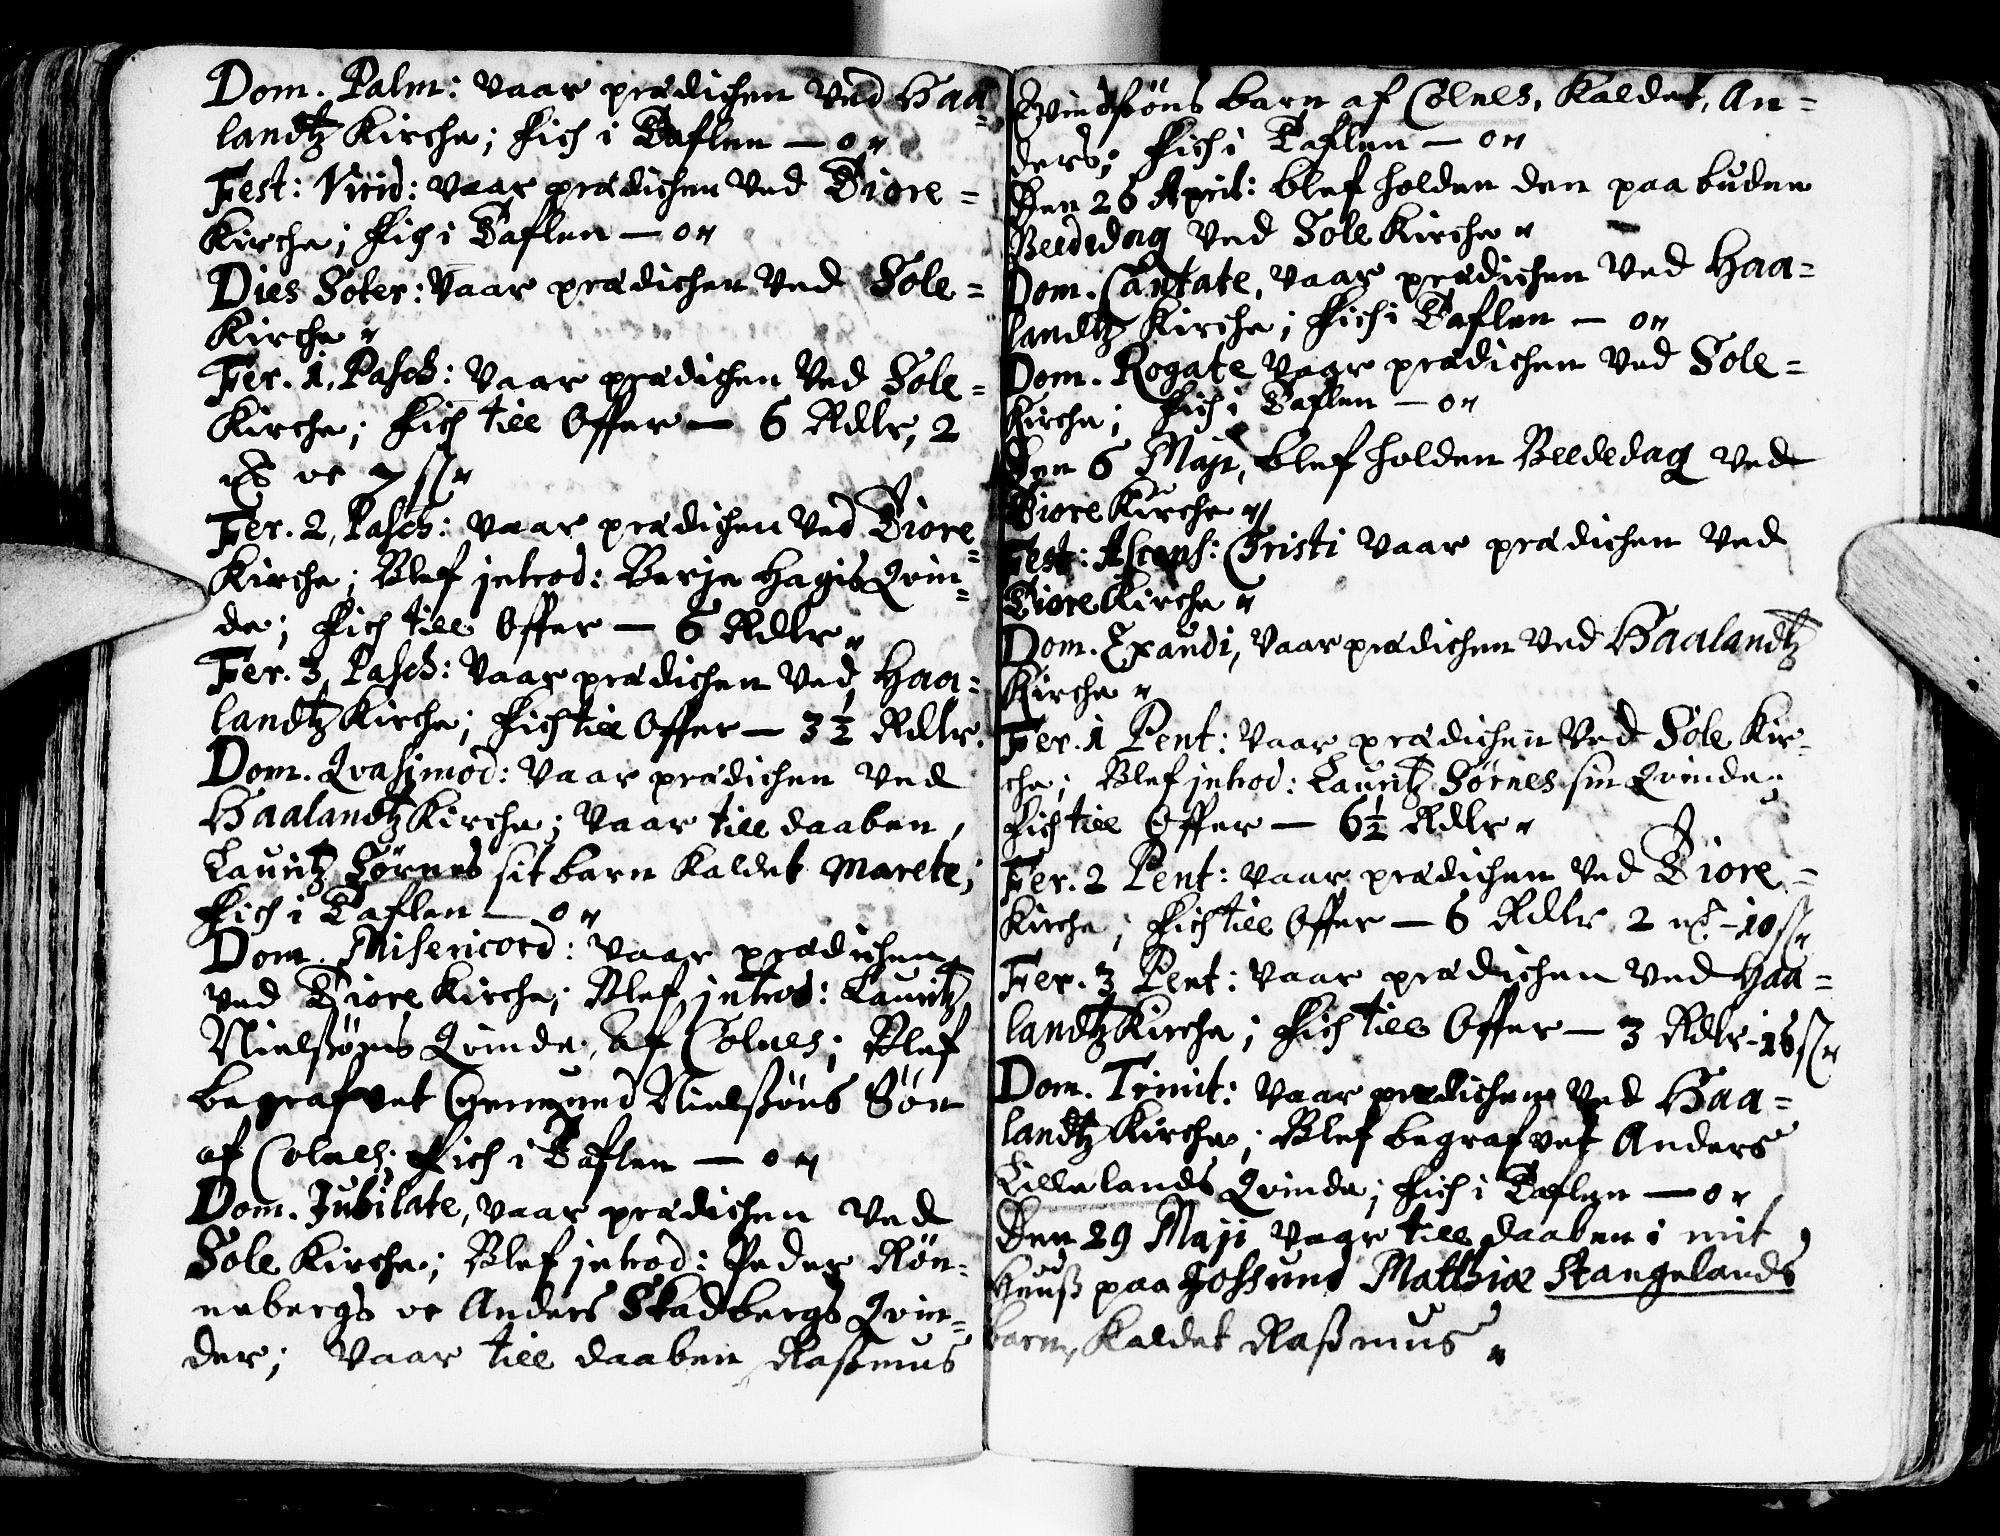 Dom. Palm: vaar prædichen ved Haa=
landtz Kirche; fich i Taflen — 0"
Fest: Virid: vaar prædichen ved Tiore=
Kirche; fich i Taflen — 0"
Dies Soter: vaar prædichen ved Sole=
Kirche"
Fer. 1, Pasch: vaar prædichen ved Sole=
Kirche; fich till Offer — 6 Rdlr, 2
oc 7 ss"
Fer. 2, Pasch: vaar prædichen ved Tiore=
Kirche; Blef introd: Berje Hagis Qvin=
de; fich till Offer — 6 Rdlr"
Fer. 3, Pasch: vaar prædichen ved Haa=
landtz Kirche; fich till Offer — 3 ½ Rdlr.
Dom. Qvasimod: vaar prædichen ved
Haalandtz Kirche; vaar till daaben,
Lauritz Sørnes sit barn kaldet Marete;
fich i Taflen — 0"
Dom. Misericord: vaar prædichen
ved Tiore Kirche; Blef introd: Lauritz
Nielsøns Qvinde, af Colnes; Blef
begrafvet Nielsøns Søn
af Colnes; fich i Taflen — 0"
Dom. Jubilate, vaar prædichen ved
Sole Kirche; Blef introd: Peder Røn=
nebergs oc Anders Skadbergs Qvin=
der; vaar till daaben Rasmus
Qvindsøns barn af Colnes, kaldet, An=
ders; fich i Taflen — 0"
Den 26 April: blef holden den paa buden
Beededag ved Sole Kirche"
Dom. Cantate, vaar prædichen ved Haa=
landtz Kirche; fich i Taflen — 0"
Dom. Rogate vaar prædichen ved Sole=
Kirche; fich i Taflen — 0"
Den 6 Maji, blef holden Beededag ved
Tiore Kirche"
Fest: Ascens: Christi vaar prædichen ved
Tiore Kirche"
Dom. Exaudi, vaar prædichen ved Haalandtz
Kirche"
Fer. 1 Pent: vaar prædichen ved Sole Kir=
che; Blef introd: Lauritz Sørnes sin Qvinde;
fich till Offer — 6½ Rdlr"
Fer. 2 Pent: vaar prædichen ved Tiore=
Kirche; fich till Offer — 6 Rdlr 2 - 10 ss"
Fer. 3 Pent: vaar prædichen ved Haa=
landtz Kirche; fich till Offer — 3 Rdlr - 16 ss"
Dom. Trinit: vaar prædichen ved Haa=
landtz Kirche; Blef begrafvet Anders
Lillelands Qvinde; fich i Taflen — 0"
Den 29 Maji vaar till daaben i mit
Huus paa Jossund Matthiæ Stangelands
barn, kaldet Rasmus"